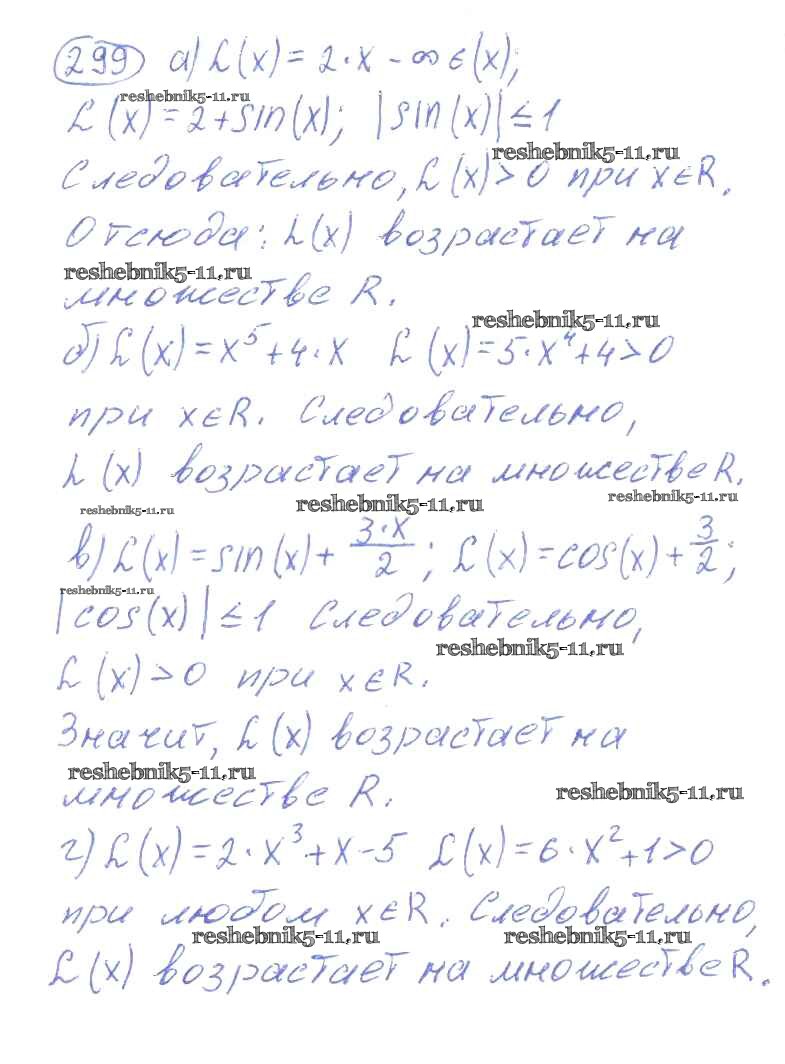 299 а) L(x) = 2·x - ∞ є(x);
reshebnik5-11.ru
L(x) = 2 + sin(x); |sin(x)| ≤ 1
reshebnik5-11.ru
Следовательно, L(x) > 0 при x∈R.
Отсюда: L(x) возрастает на
reshebnik5-11.ru
множестве R.
reshebnik5-11.ru
б) L(x) = x⁵ + 4·x L(x) = 5·x⁴ + 4 > 0
при x∈R. Следовательно,
L(x) возрастает на множестве R.
reshebnik5-11.ru reshebnik5-11.ru reshebnik5-11.ru
в) L(x) = sin(x) + 3·x/2; L(x) = cos(x) + 3/2;
reshebnik5-11.ru
|cos(x)| ≤ 1 Следовательно,
reshebnik5-11.ru
L(x) > 0 при x∈R.
Значит, L(x) возрастает на
reshebnik5-11.ru
множестве R.
reshebnik5-11.ru
г) L(x) = 2·x³ + x - 5 L(x) = 6·x² + 1 > 0
при любом x∈R. Следовательно,
reshebnik5-11.ru reshebnik5-11.ru
L(x) возрастает на множестве R.